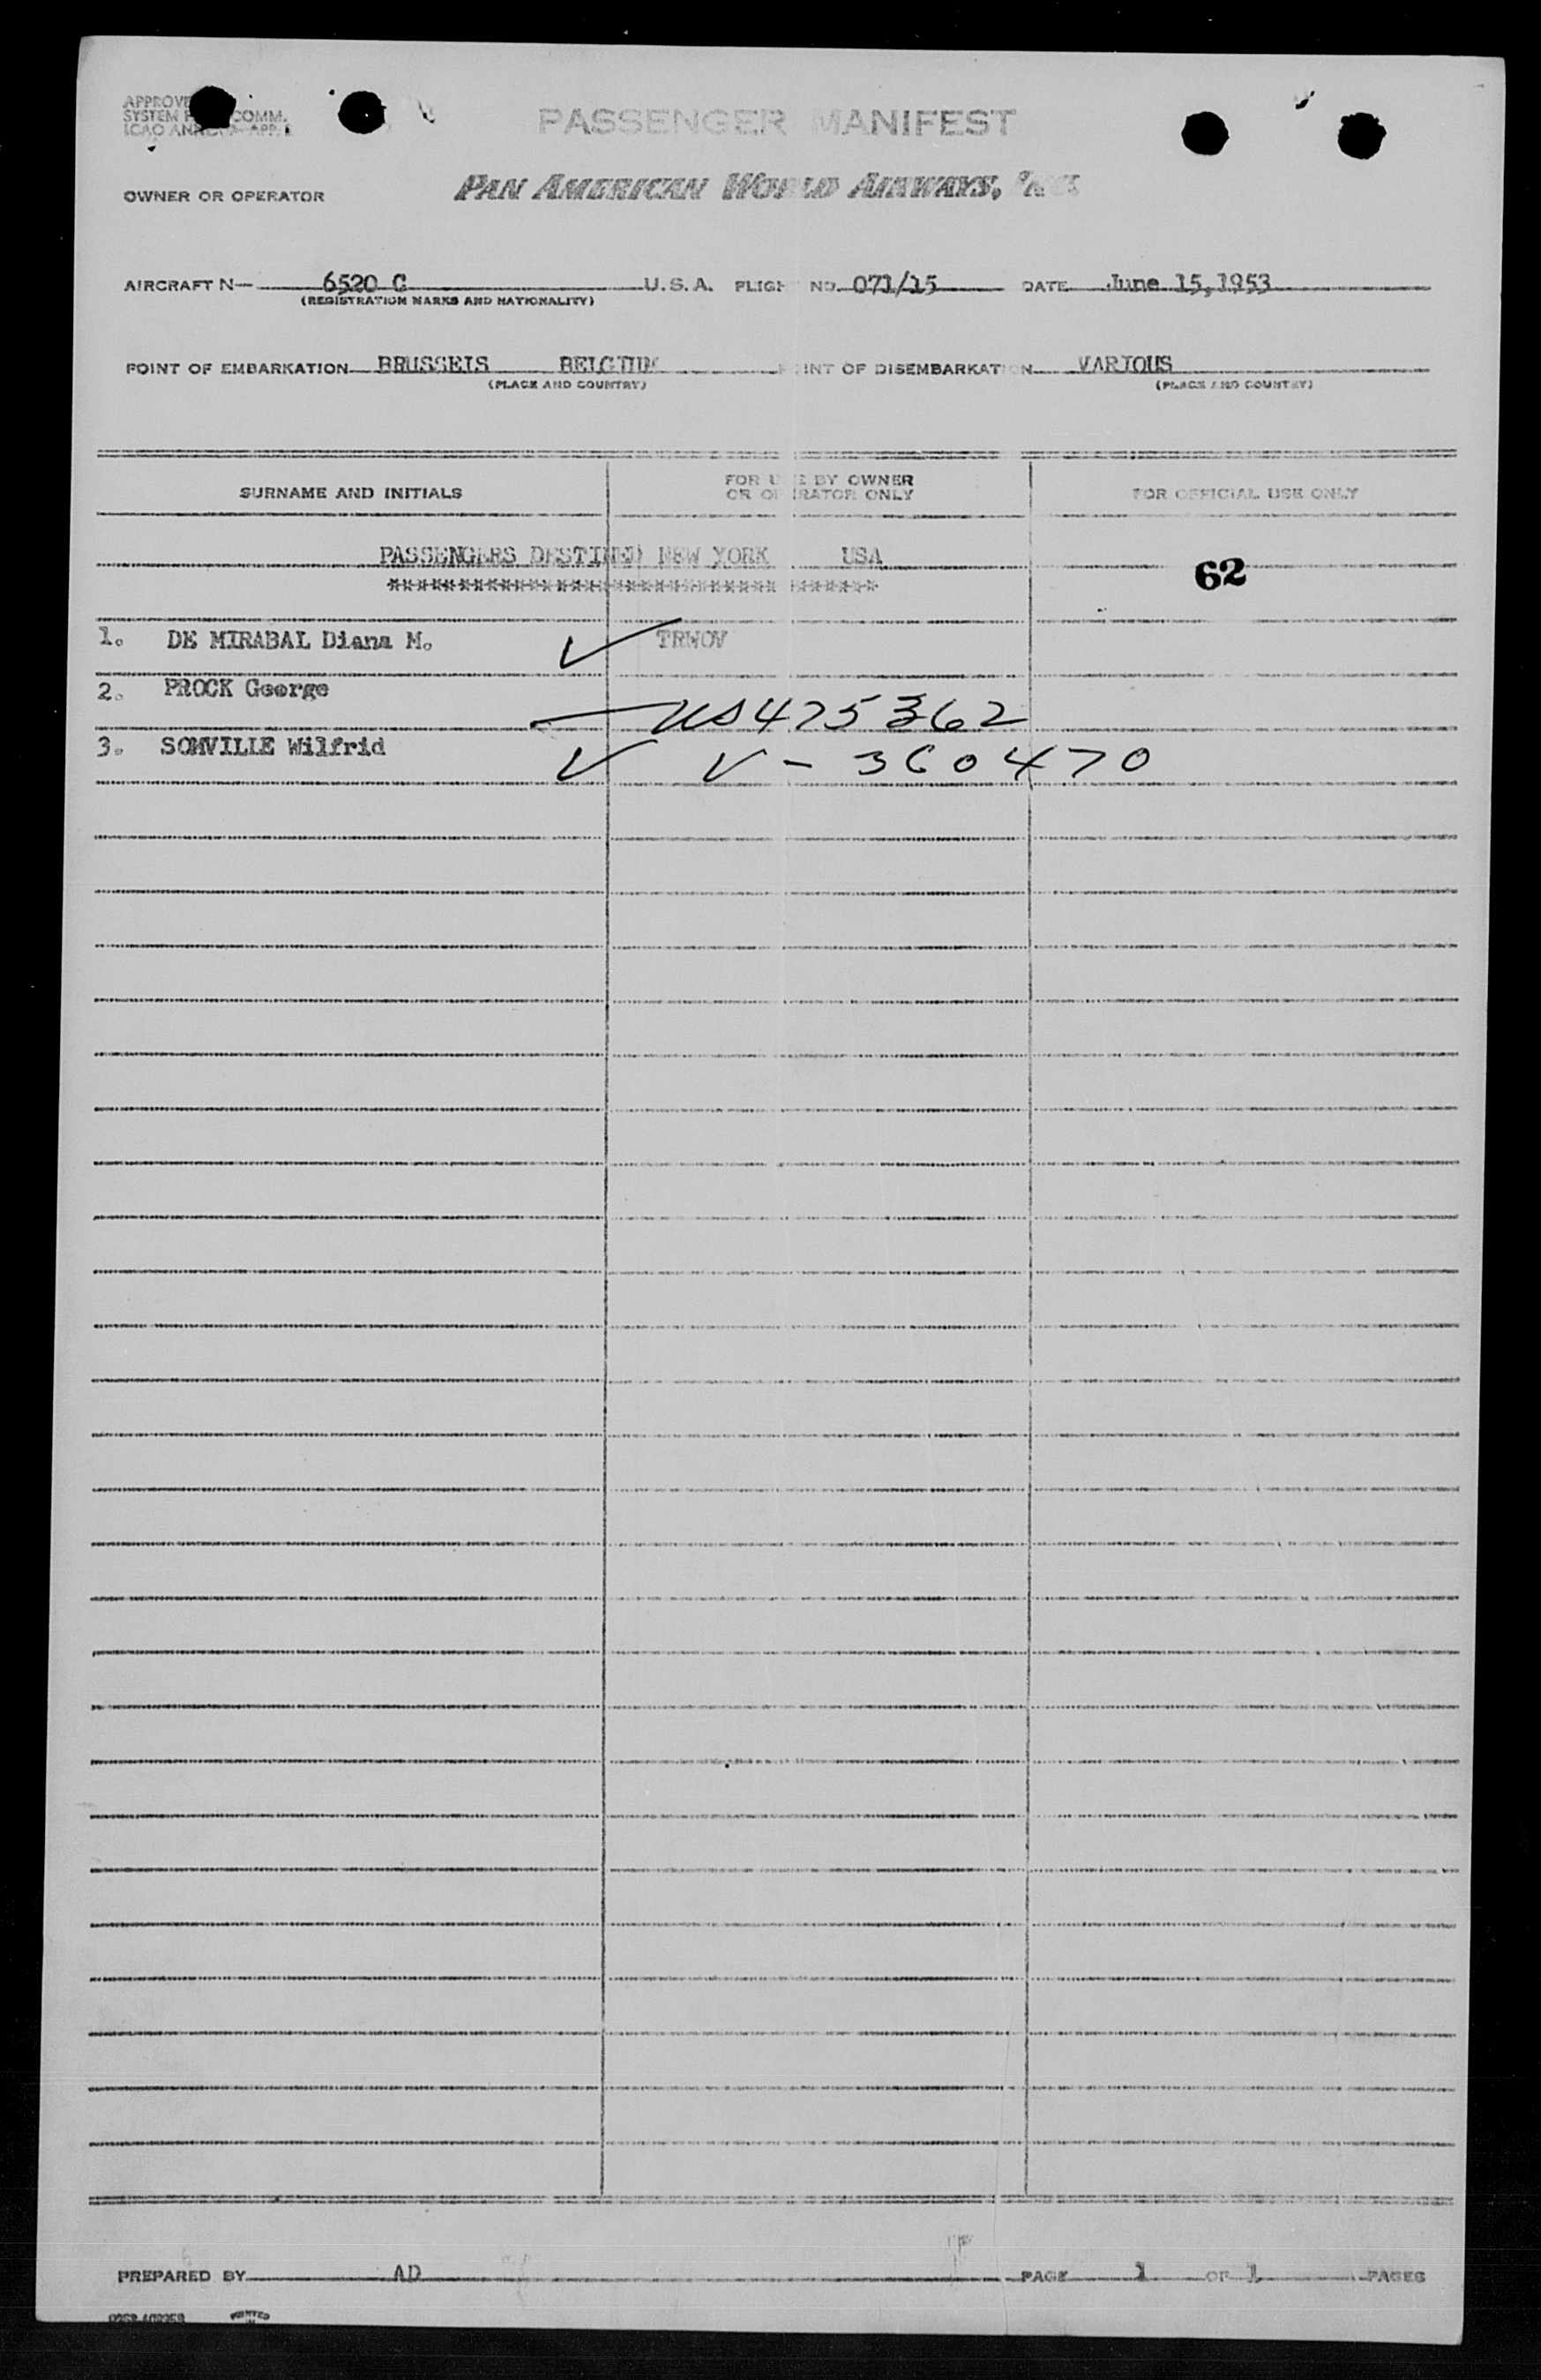 PASSENGER MANIFEST
SYSTEM COMM.
OWNER OR OPERATOR PAN AMERICAN WORLD AIRWAYS,
AIRCRAFT N— 6520 C U.S.A. FLIGHT NO. 071/15 DATE June 15,1953
(REGISTRATION MARKS AND NATIONALITY)
POINT OF EMBARKATION BRUSSELS BELGIUM POINT OF DISEMBARKATION VARIOUS
(PLACE AND COUNTRY) (PLACE AND COUNTRY)
SURNAME AND INITIALS FOR USE BY OWNER OR OPERATOR ONLY FOR OFFICIAL USE ONLY
PASSENGERS DESTINED NEW YORK USA
62
1. DE MIRABAL Diana M. ✓ TRWOV
2. PROCK George — US475362
3. SOMVILLE Wilfrid ✓ V-360470
PREPARED BY AD PAGE 1 OF 1 PAGES
PRINTED